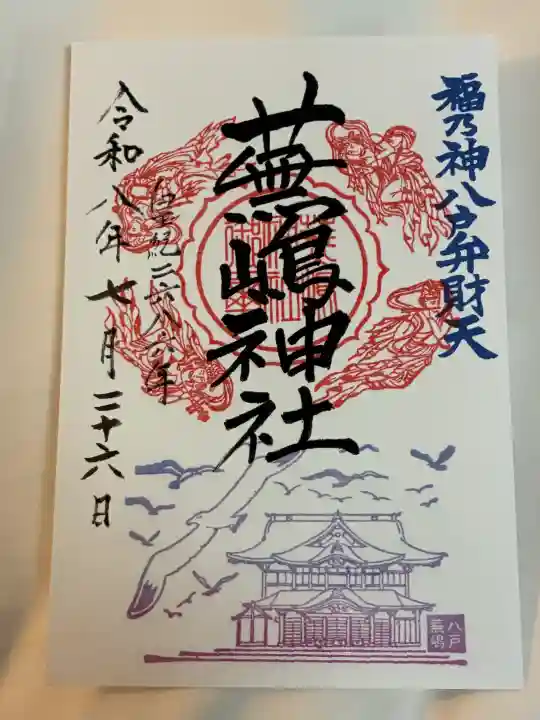 福乃神八戸弁財天
蕪嶋神社
皇紀二六八六年
令和八年七月二十六日
八戸
蕪嶋